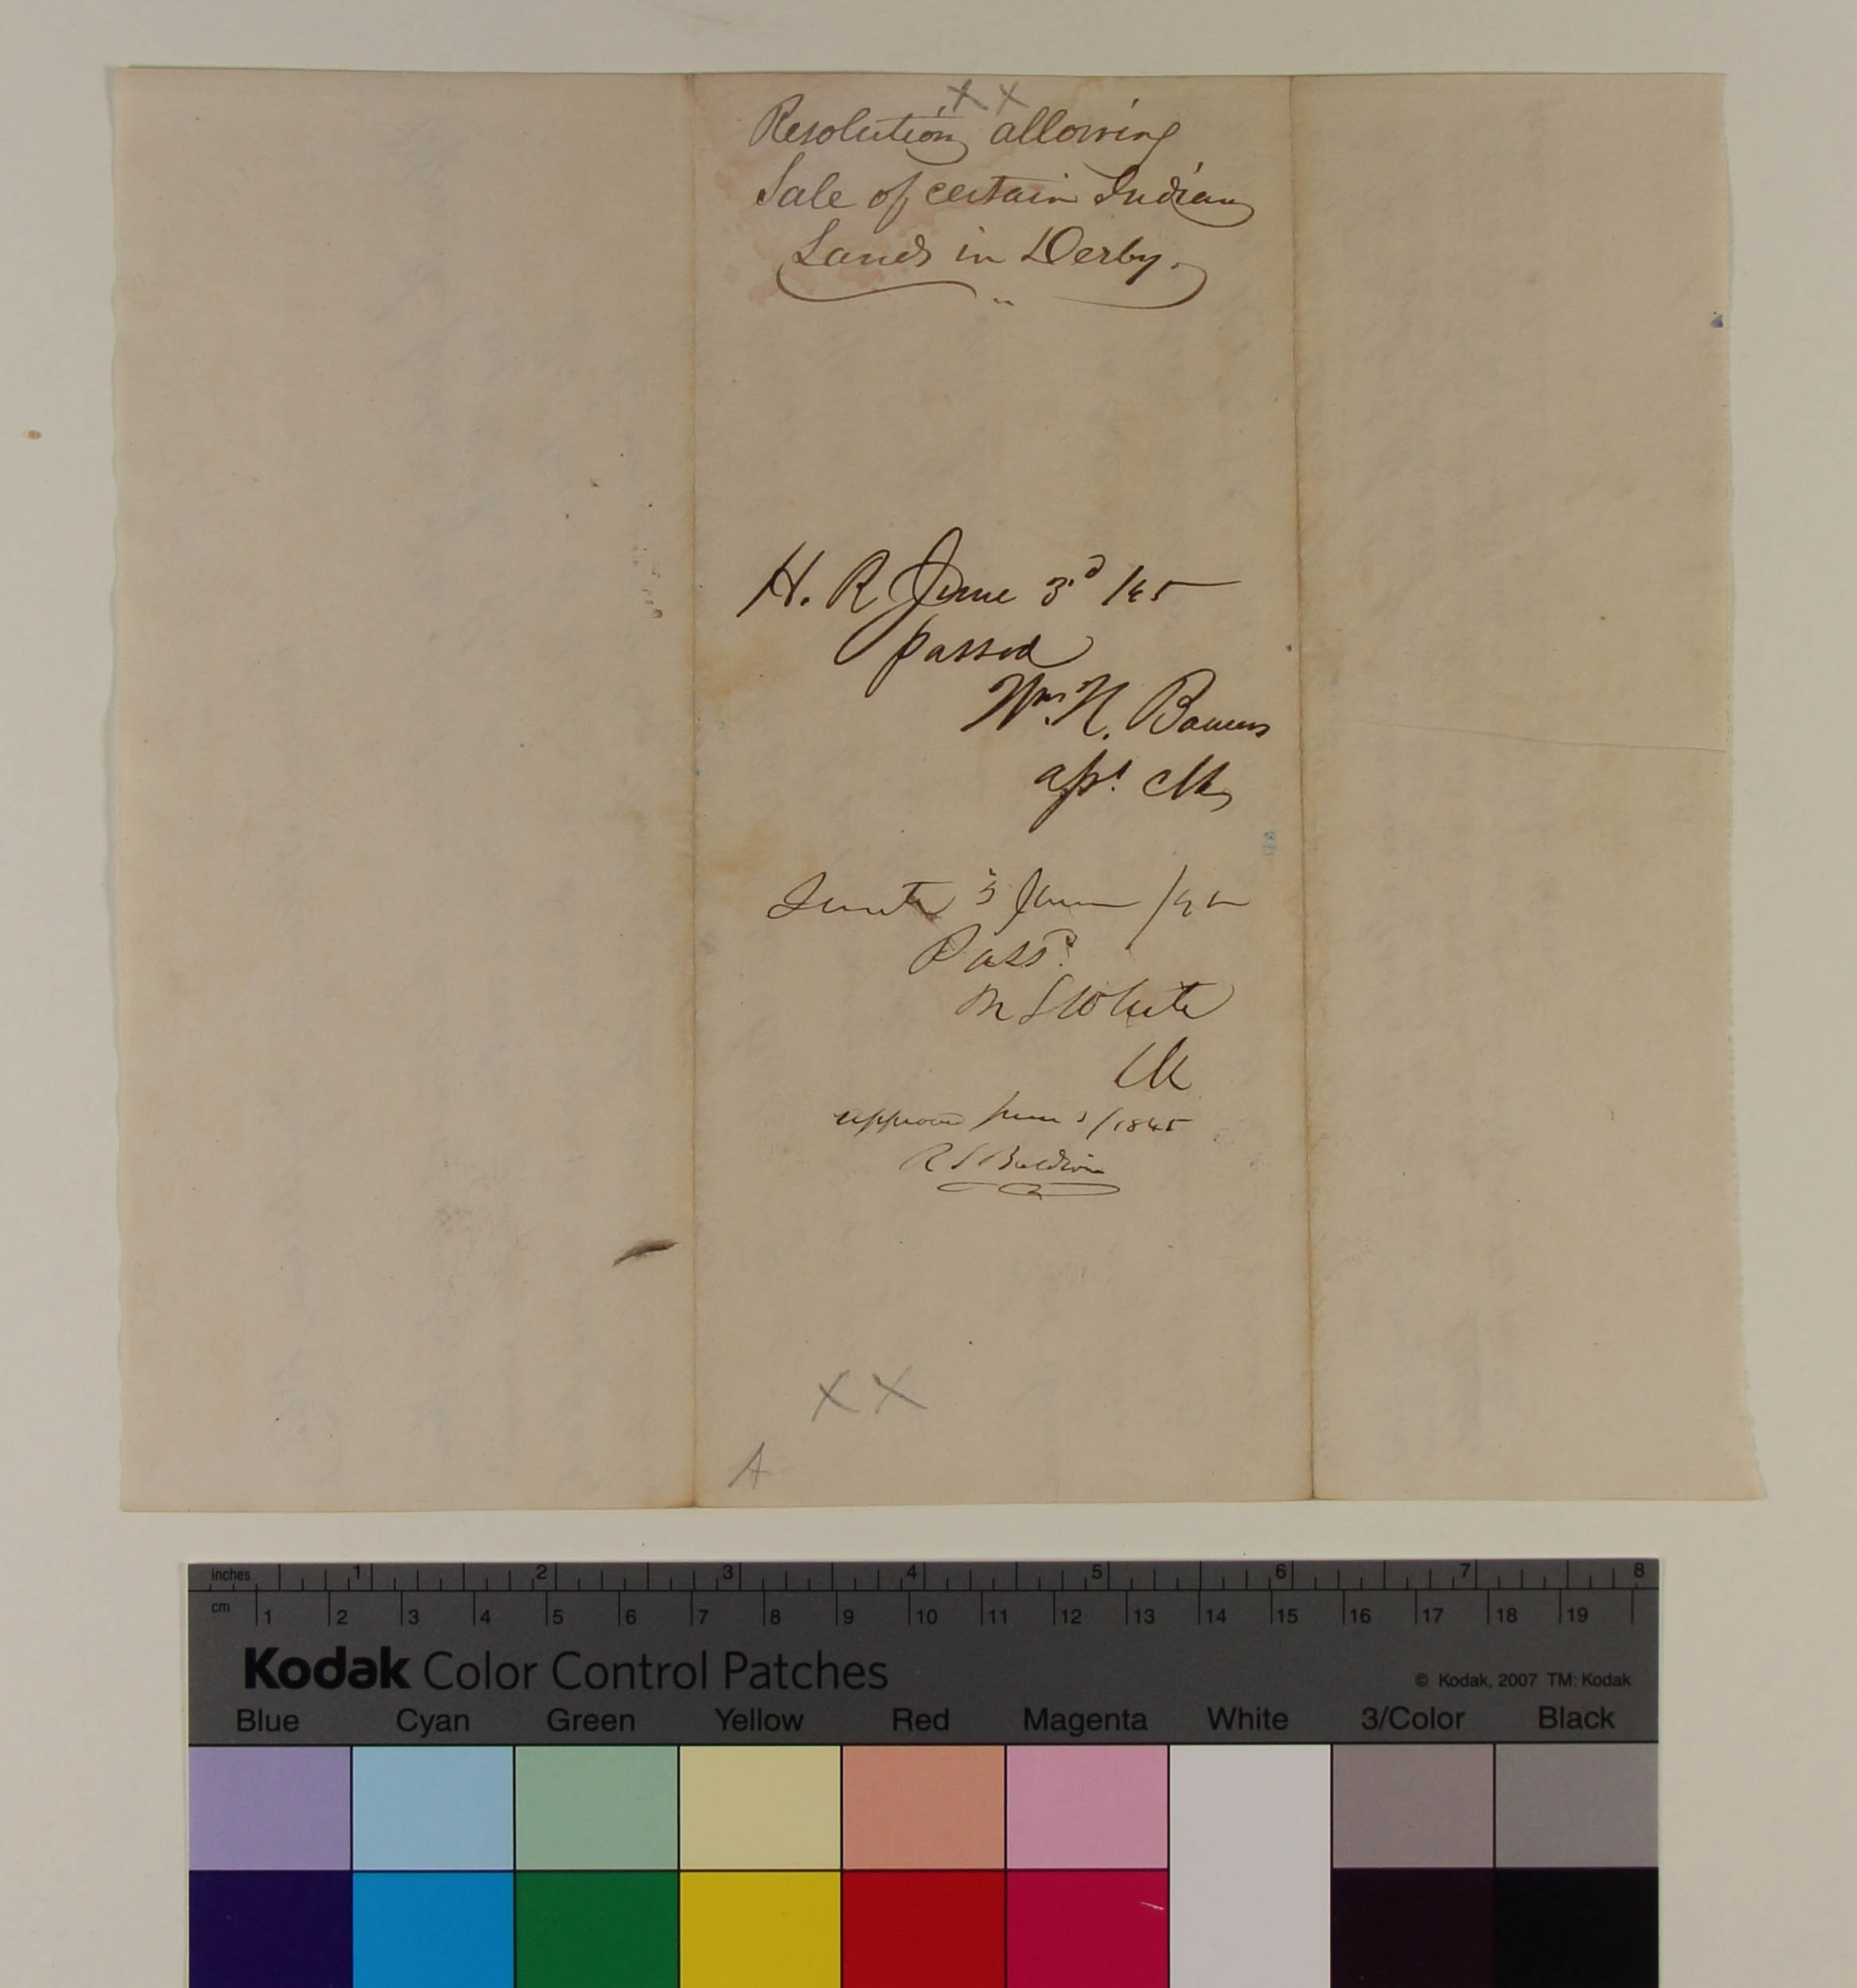 X X
Resolution allowing
Sale of certain Indian
Lands in Derby.
H. R June 3d /45
passed
Wm. N. Bowers
asst. Clk
Senate 3 June /45
Passd.
Clk
approved June 3/1845
R S Baldwin
X X
A
inches 1 2 3 4 5 6 7 8
cm 1 2 3 4 5 6 7 8 9 10 11 12 13 14 15 16 17 18 19
Kodak Color Control Patches
© Kodak, 2007 TM: Kodak
Blue Cyan Green Yellow Red Magenta White 3/Color Black